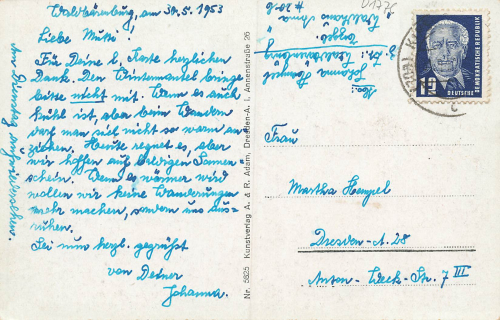 Waldbärenburg, am 30.5.1953
Liebe Mutti!
Für Deine l. Karte herzlichen
Dank. Den Wintermantel bringe
bitte nicht mit. Wenn es auch
kühl ist, aber beim Wandern
darf man sich nicht so warm an-
ziehen. Heute regnet es, aber
wir hoffen auf baldigen Sonnen-
schein. Wenn es wärmer wird
wollen wir keine Wanderungen
mehr machen, sondern uns aus-
ruhen.
Sei nun herzl. gegrüßt
von Deiner
Johanna.
Am Dienstag aufwiedersehen.
Nr. 5825 Kunstverlag A. & R. Adam, Dresden-A. 1, Annenstraße 26
Abs:
Johanna Hempel
DEUTSCHE
DEMOKRATISCHE REPUBLIK
Frau
Martha Hempel
Dresden-A. 28
Anton-Weck-Str. 7 III